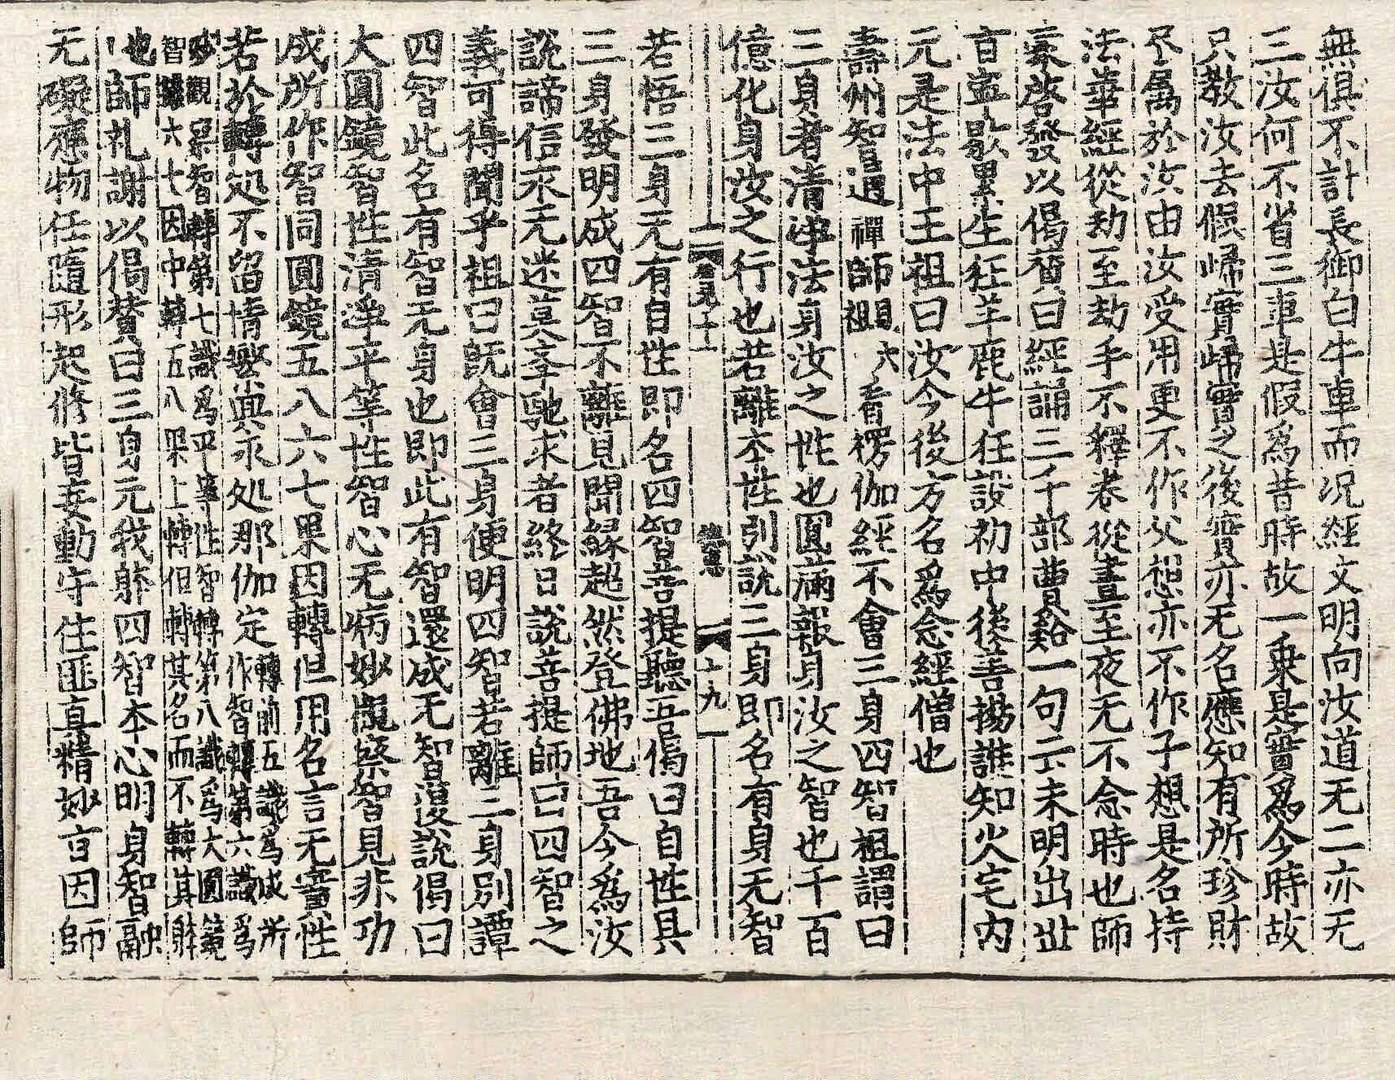 無俱不計長御白牛車而况經文明向汝道无二亦无
三汝何不省三車是假爲昔時故一乗是實爲今時故
只教汝去假歸實歸實之後實亦无名應知有所珍財
尽属於汝由汝受用更不作父想亦不作子想是名持
法華經從劫至劫手不釋卷從晝至夜无不念時也師
蒙啓發以偈賛曰經誦三千部曹谿一句亡未明出世
言寧歇累生狂羊鹿牛㩲設初中後善揚誰知火宅内
元是法中王祖曰汝今後方名爲念經僧也
壽州智通禪師祖看楞伽經不會三身四智祖謂曰
三身者清淨法身汝之性也圓滿報身汝之智也千百
億化身汝之行也若離本性别說三身即名有身无智
十九
若悟三身无有自性即名四智菩提聽吾偈曰自性具
三身發明成四智不離見聞縁超然登佛地吾今爲汝
說諦信永无迷莫孝馳求者終日說菩提師曰四智之
義可得聞乎祖曰既會三身便明四智若離三身别譚
四智此名有智无身也即此有智還成无智復說偈曰
大圓鏡智性清淨平等性智心无病妙觀察智見非功
成所作智同圓鏡五八六七果因轉但用名言无實性
若於轉処不留情繁興永処那伽定轉前五識爲成所作智轉第六識爲
妙觀察智轉第七識爲平等性智轉第八識爲大圓鏡
智雖六七因中轉五八果上轉但轉其名而不轉其躰
也師礼謝以偈賛曰三身元我躰四智本心明身智融
无礙應物任隨形起修皆妄動守住匪真精妙言因師